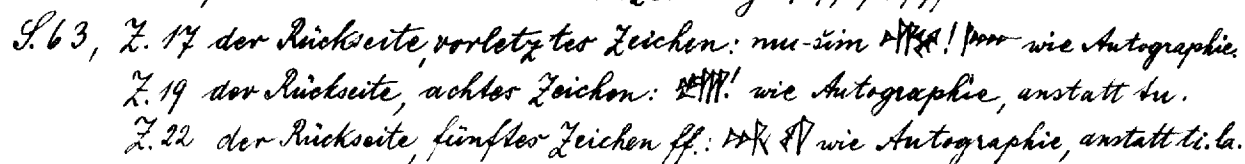 S. 63, Z. 17 der Rückseite, vorletztes Zeichen: mu-šim ! wie Autographie.
Z. 19 der Rückseite, achtes Zeichen: ! wie Autographie, anstatt tu.
Z. 22 der Rückseite, fünftes Zeichen ff.: wie Autographie, anstatt ti. la.